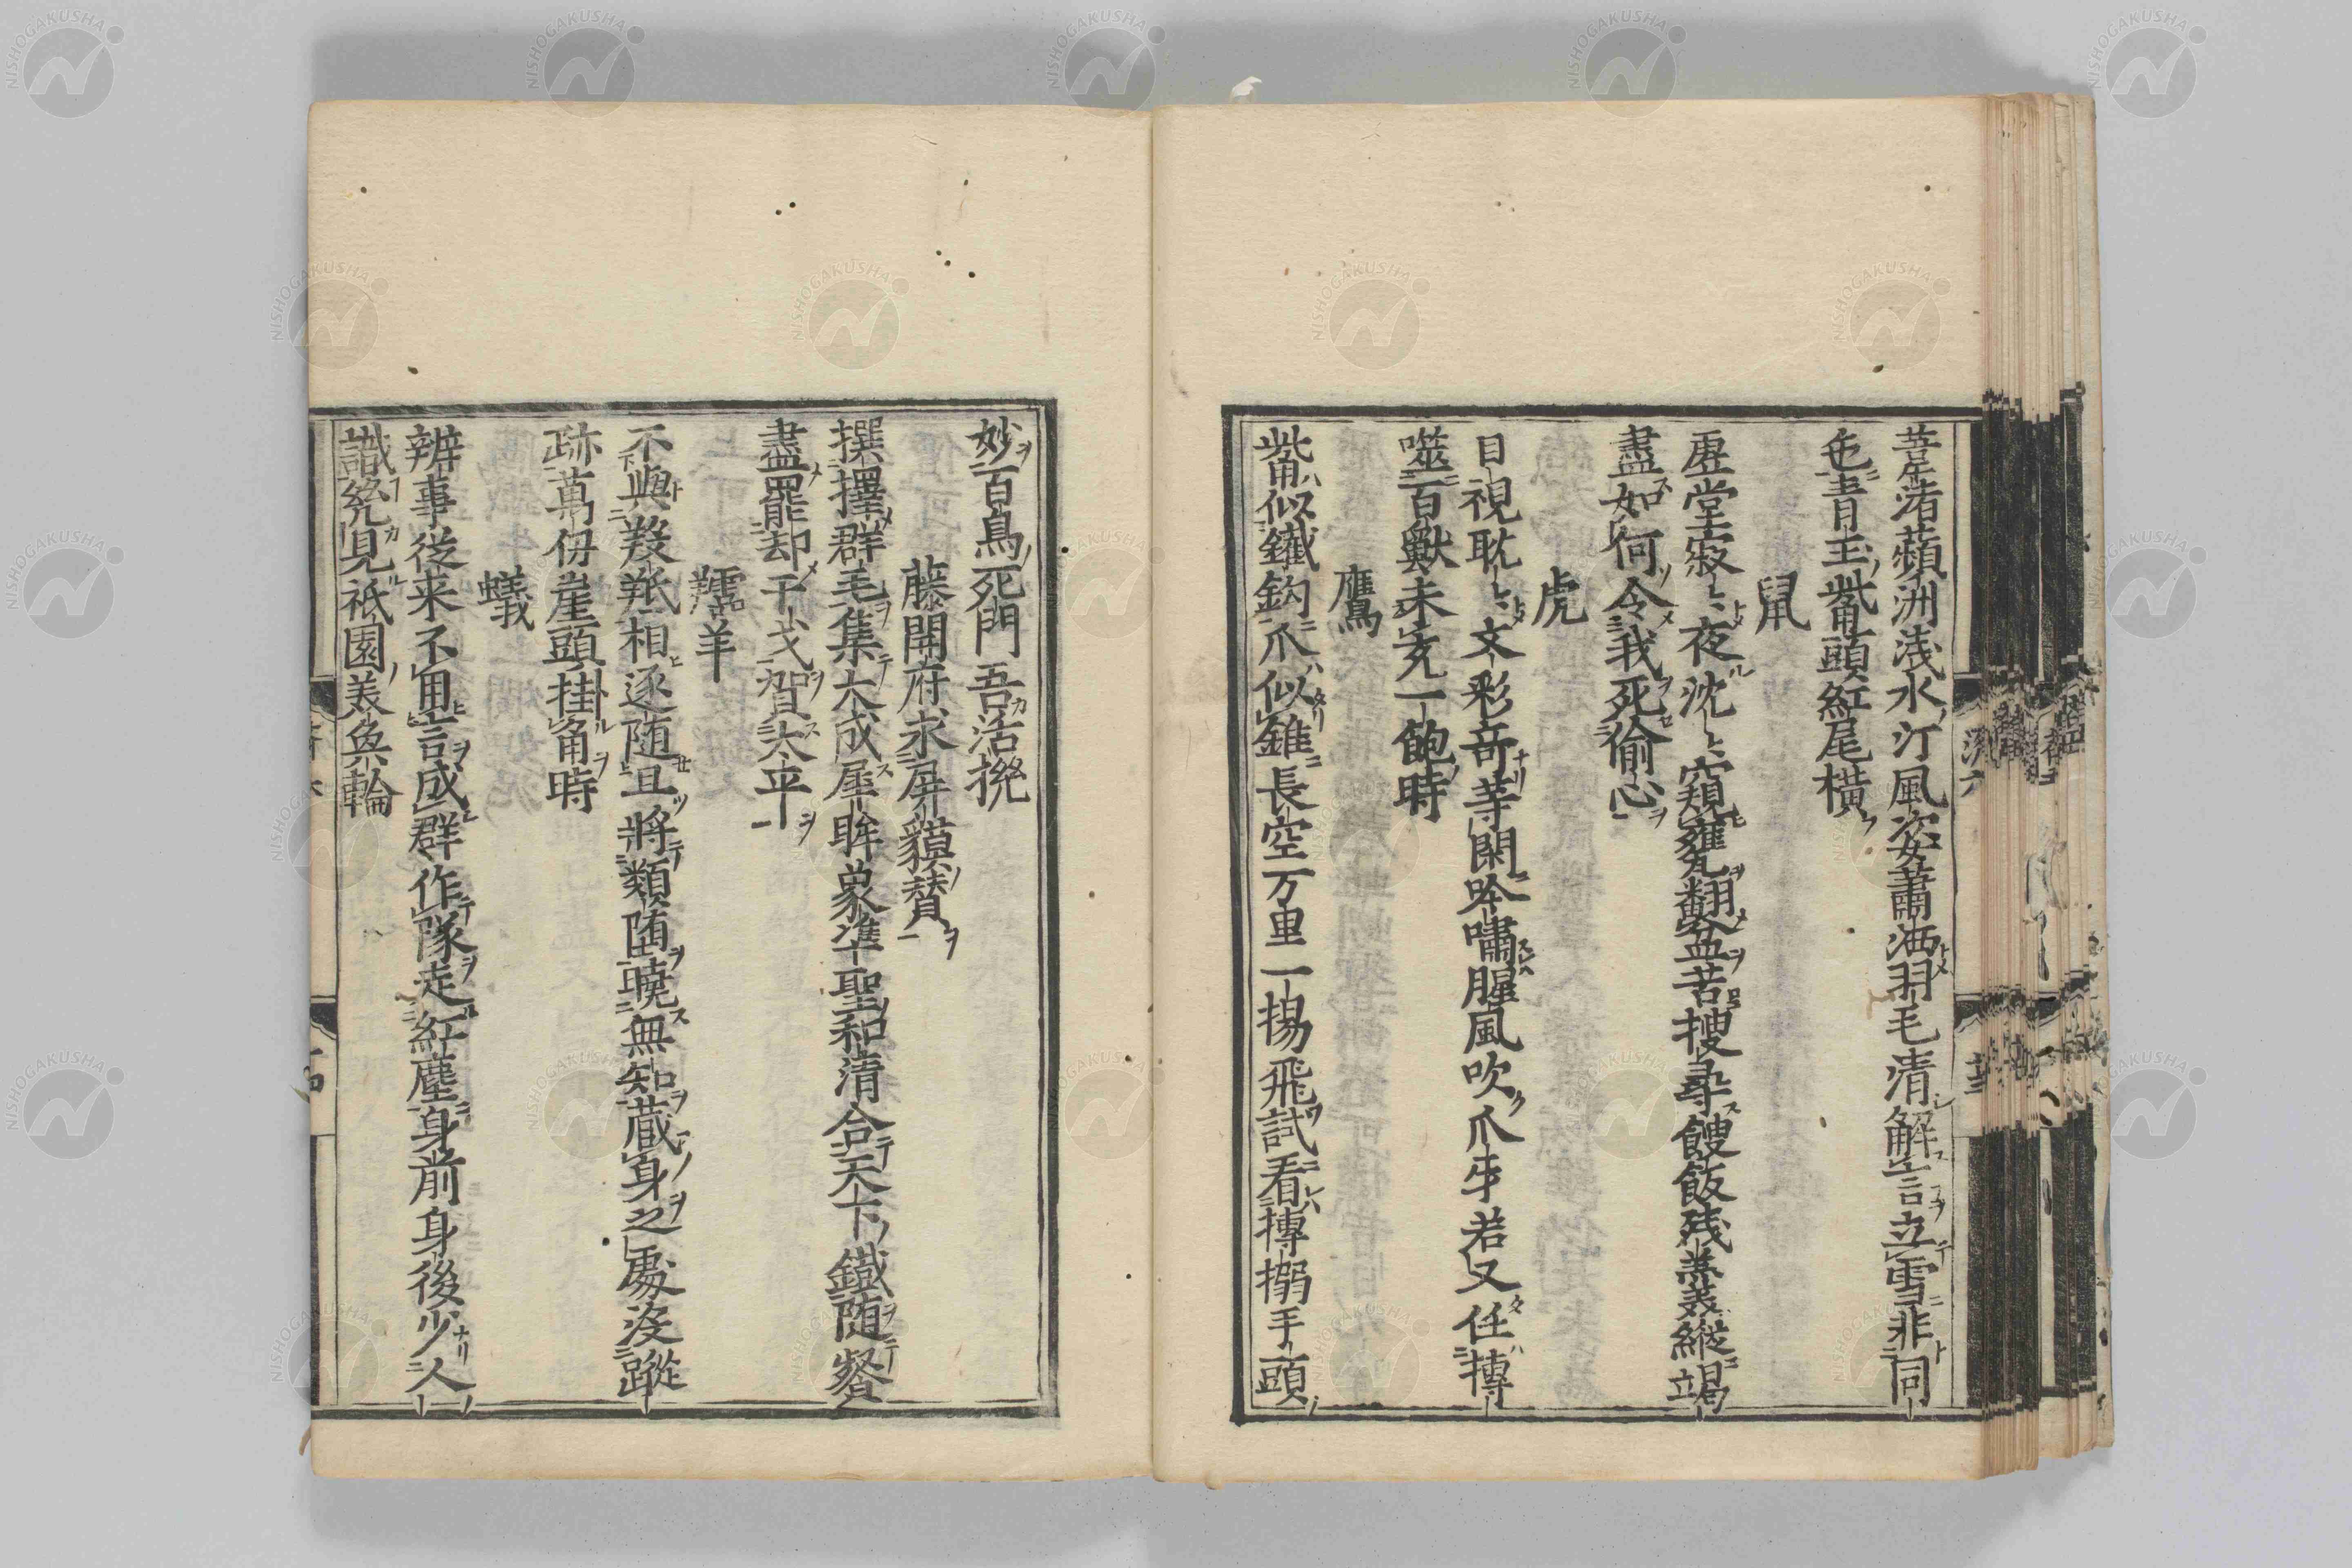 菩渚蘋洲浅水汀風姿蕭洒羽毛清解言立雪非同
色青玉觜頭紅尾横
鼠
虚堂寂〻夜沈〻窺甕翻盆苦捜尋餿飯残羹縦竭
盡如何令我死偷心
虎
目視耽〻文彩奇等閑吟嘯腥風吹爪牙若又任摶
噬百獸未充一飽時
鷹
觜似鐵鈎爪似錐長空万里一揚飛試看摶搦手頭
妙百鳥死門吾活機
藤開府求屏貘賛
撰擇群毛集大成犀眸象準聖和清合天下鐵随餐
盡罷却干戈賀太平
羚羊
不與羖羝相逐随且將類堕曉無知蔵身之處没蹤
跡萬仞崖頭掛角時
蟻
辨事従来不用言成群作隊走紅塵身前身後少人
識纔見祇園美奐輪
NISHOGAKUSHA